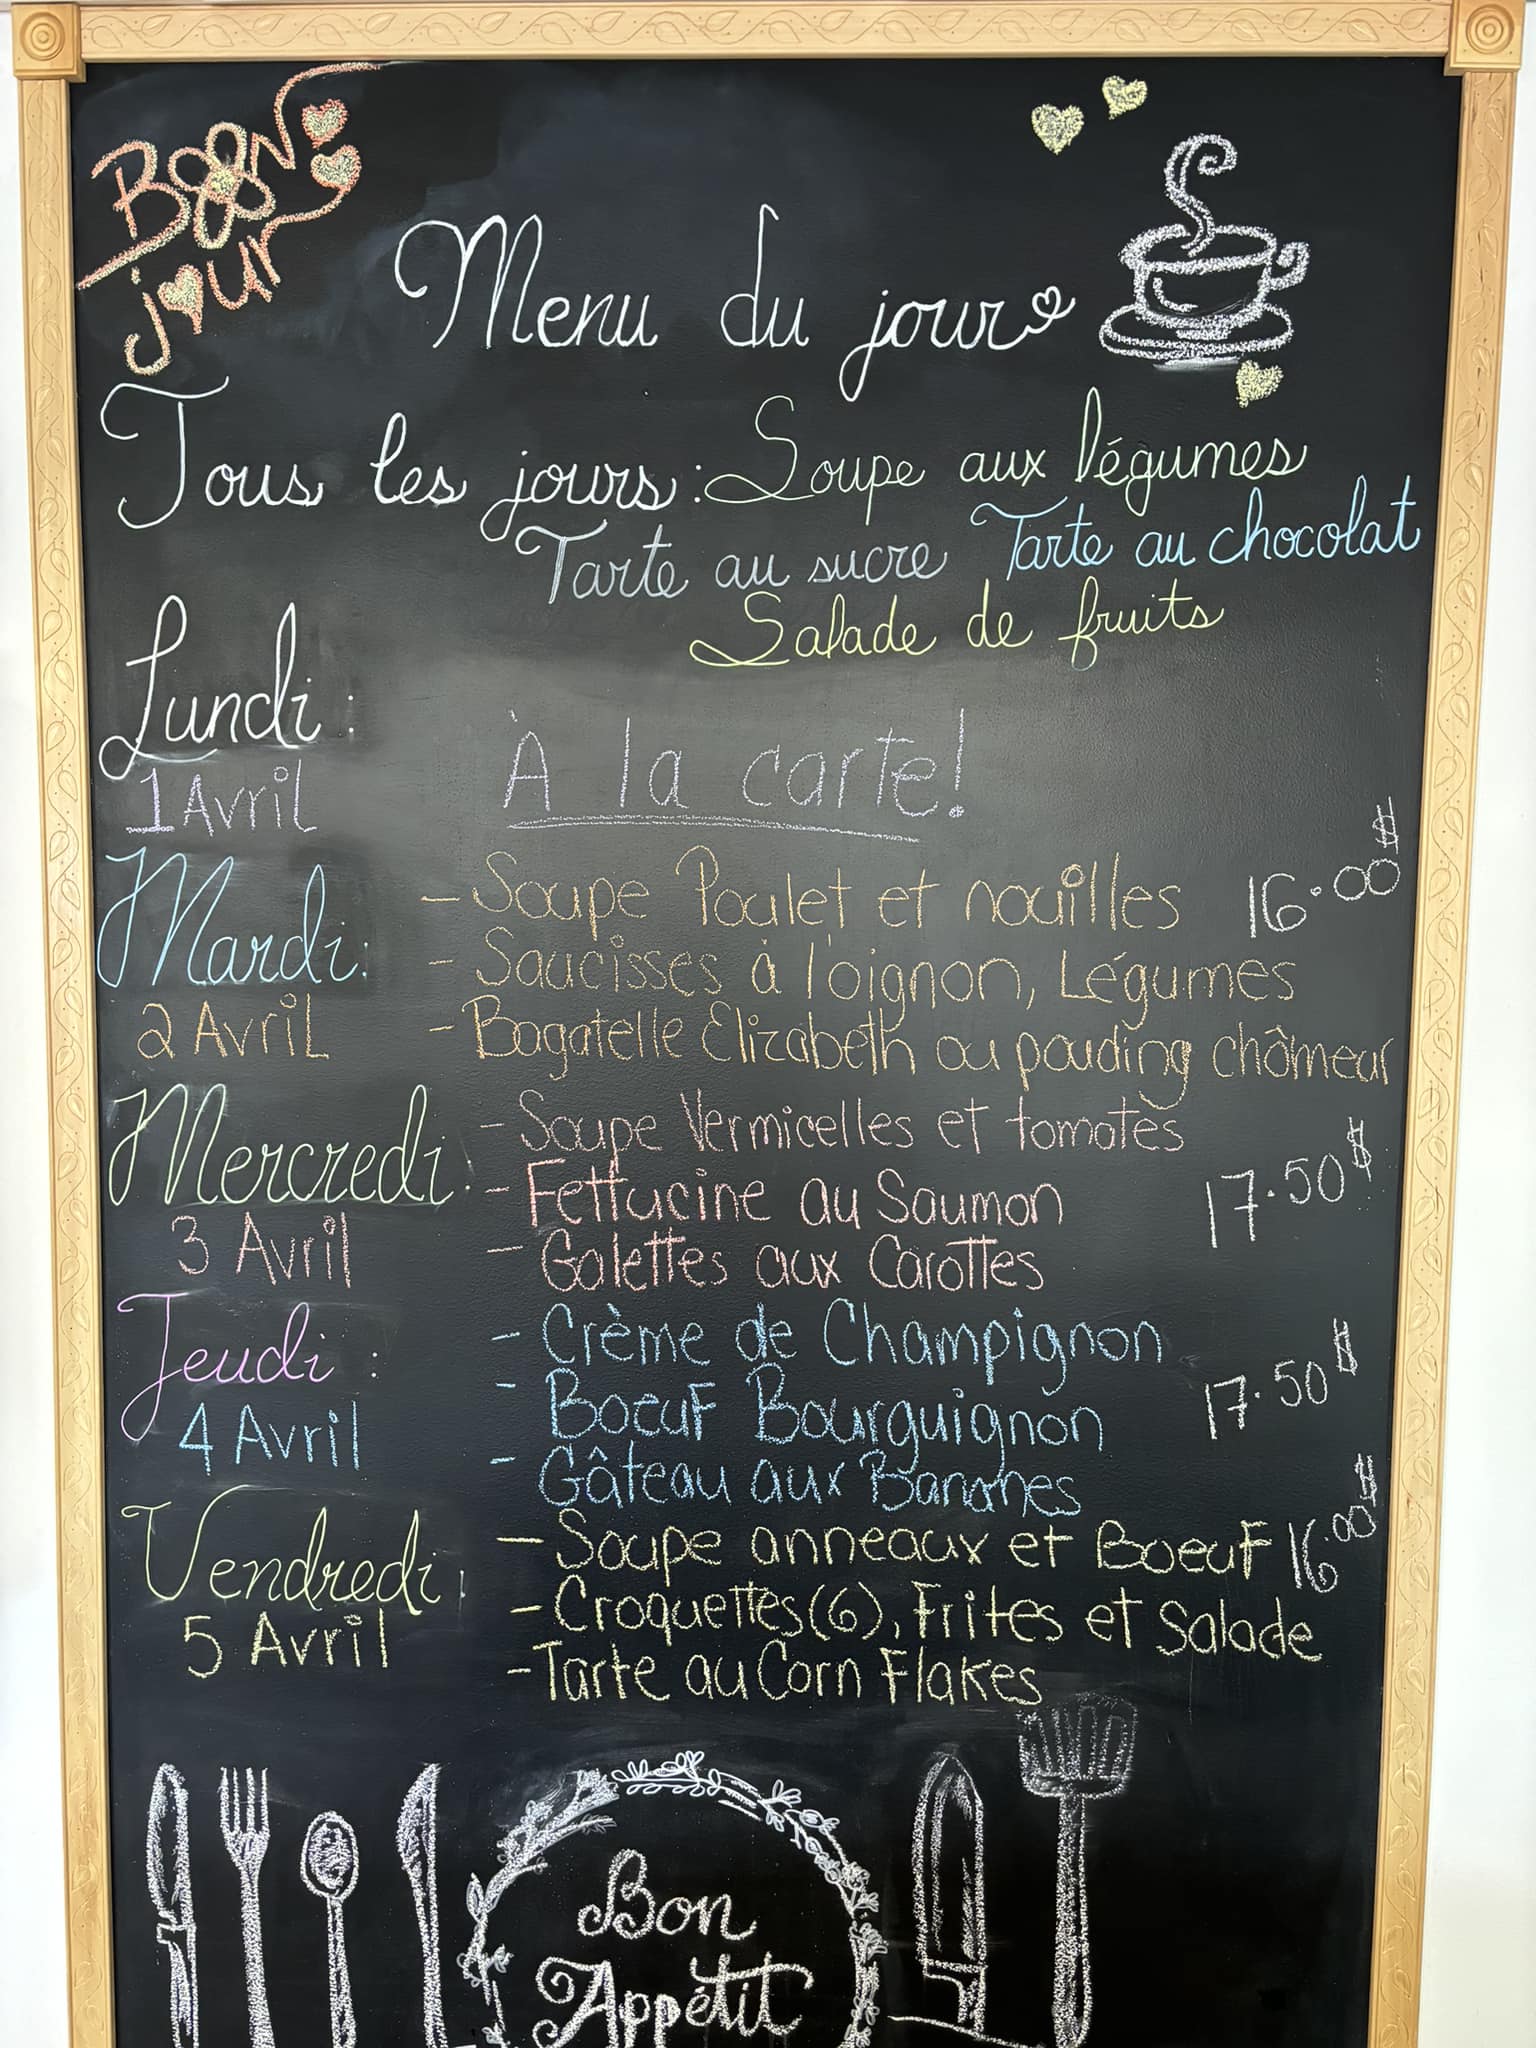 Bon
jour
Menu du jour
Tous les jours: Soupe aux légumes
Tarte au sucre Tarte au chocolat
Salade de fruits
Lundi:
1 Avril
À la carte!
Mardi:
2 Avril
- Soupe Poulet et nouilles 16.00$
- Saucisses à l'oignon, Légumes
- Bagatelle Elizabeth ou pouding chômeur
Mercredi:
3 Avril
- Soupe Vermicelles et tomates
- Fettucine au Saumon 17.50$
- Galettes aux Carottes
Jeudi:
4 Avril
- Crème de Champignon
- Boeuf Bourguignon 17.50$
- Gâteau aux Bananes
Vendredi:
5 Avril
- Soupe anneaux et Boeuf 16.00$
- Croquettes(6), Frites et Salade
- Tarte au Corn Flakes
Bon
Appétit